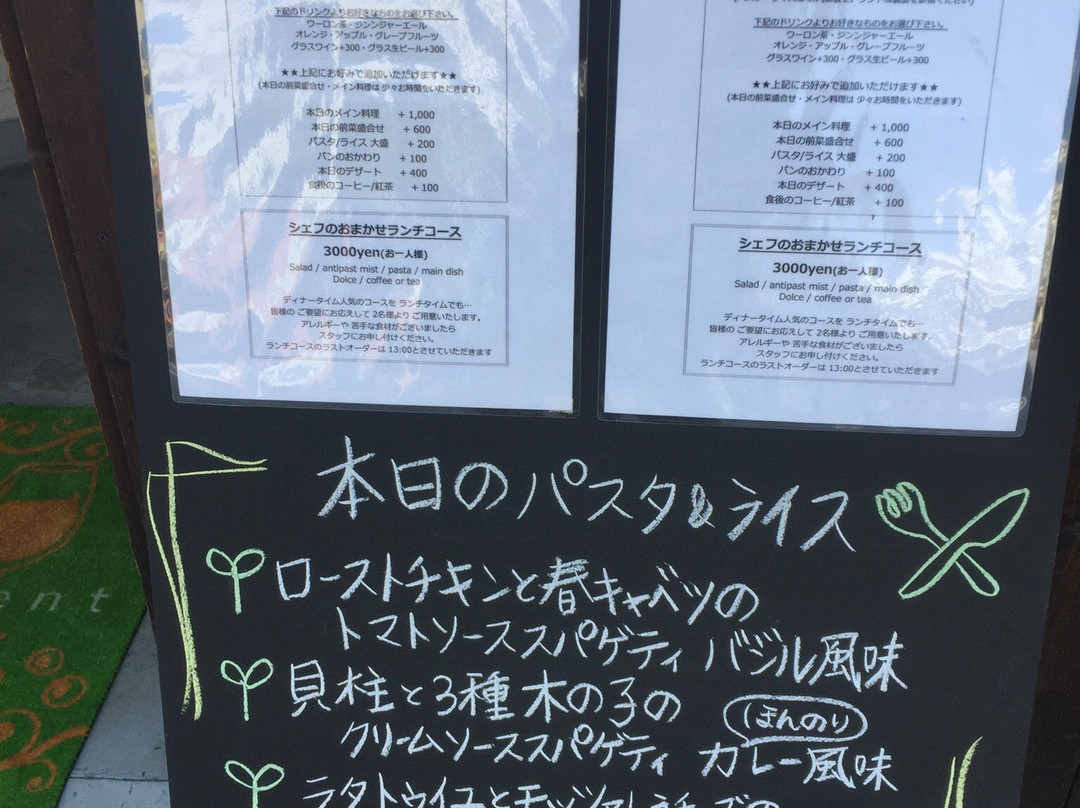 下記のドリンクよりお好きなものをお選び下さい。
ウーロン茶・ジンジャーエール
オレンジ・アップル・グレープフルーツ
グラスワイン+300・グラス生ビール+300
★★上記にお好みで追加いただけます★★
(本日の前菜盛合せ・メイン料理は 少々お時間をいただきます)
本日のメイン料理 + 1,000
本日の前菜盛合せ + 600
パスタ/ライス 大盛 + 200
パンのおかわり + 100
本日のデザート + 400
食後のコーヒー/紅茶 + 100
シェフのおまかせランチコース
3000yen(お一人様)
Salad / antipast mist / pasta / main dish
Dolce / coffee or tea
ディナータイム人気のコースを ランチタイムでも…
皆様の ご要望にお応えして 2名様より ご用意いたします。
アレルギーや 苦手な食材がございましたら
スタッフにお申し付けください。
ランチコースのラストオーダーは 13:00とさせていただきます
下記のドリンクよりお好きなものをお選び下さい。
ウーロン茶・ジンジャーエール
オレンジ・アップル・グレープフルーツ
グラスワイン+300・グラス生ビール+300
★★上記にお好みで追加いただけます★★
(本日の前菜盛合せ・メイン料理は 少々お時間をいただきます)
本日のメイン料理 + 1,000
本日の前菜盛合せ + 600
パスタ/ライス 大盛 + 200
パンのおかわり + 100
本日のデザート + 400
食後のコーヒー/紅茶 + 100
シェフのおまかせランチコース
3000yen(お一人様)
Salad / antipast mist / pasta / main dish
Dolce / coffee or tea
ディナータイム人気のコースを ランチタイムでも…
皆様の ご要望にお応えして 2名様より ご用意いたします。
アレルギーや 苦手な食材がございましたら
スタッフにお申し付けください。
ランチコースのラストオーダーは 13:00とさせていただきます
本日のパスタ&ライス
ローストチキンと春キャベツの
トマトソーススパゲティ バジル風味
貝柱と3種木の子の
クリームソーススパゲティ ほんのりカレー風味
ラタトゥイユとモッツァレラチーズの
ent